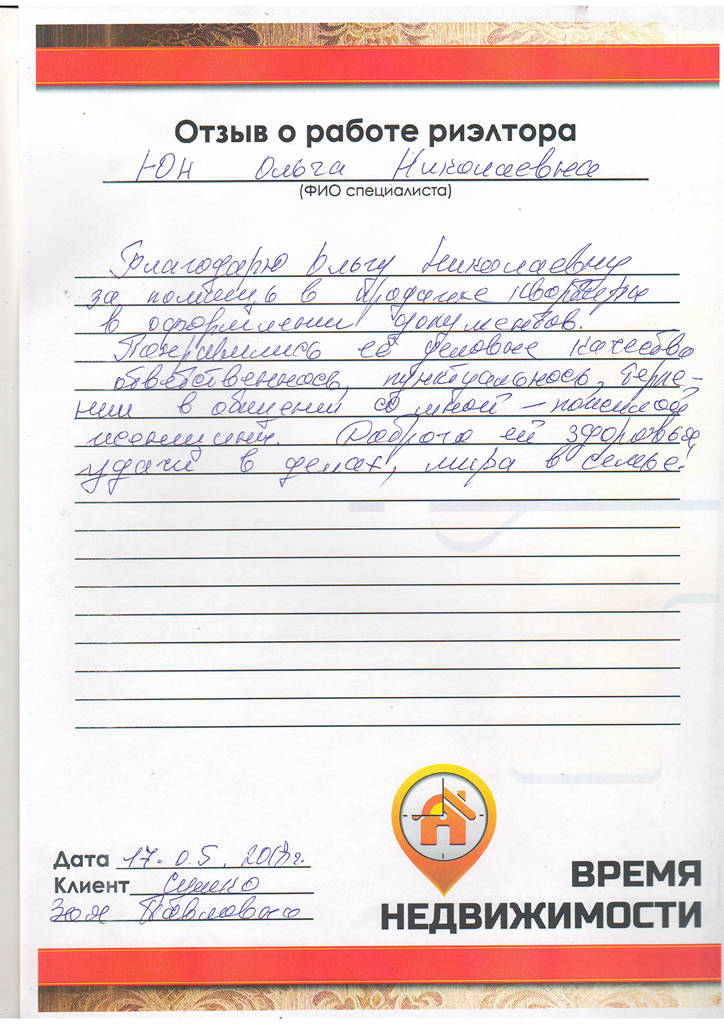 Отзыв о работе риэлтора
Юн Ольга Николаевна
(ФИО специалиста)
Благодарю Ольгу Николаевну
за помощь в продаже квартиры
в оформлении документов.
Понравились её деловые качества
ответственность, пунктуальность, терпе-
нии в общении со мной – пожилой
женщиной. Доброго ей здоровья
удачи в делах, мира в семье!
Дата 17.05.
Клиент
Зоя Павловна
ВРЕМЯ
НЕДВИЖИМОСТИ